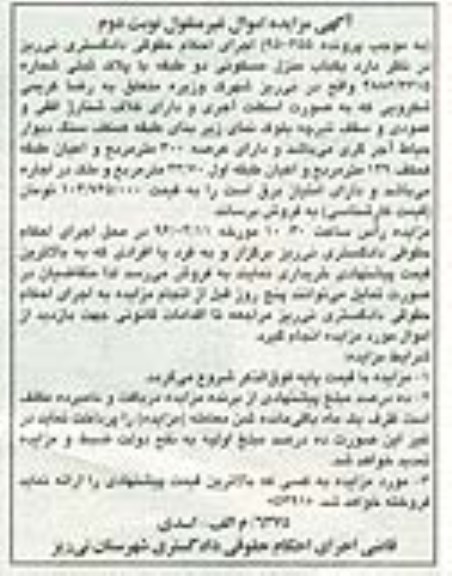 آگهی مزایده اموال غیرمنقول نوبت دوم
به موجب پرونده اجرای احکام حقوقی دادگستری نی‌ریز
در نظر دارد یکباب منزل مسکونی دو طبقه با پلاک ثبتی شماره
واقع در نی‌ریز شهرک وزیره متعلق به رضا کریمی
که به صورت اسکلت آجری و دارای کلاف شناژ افقی و
عمودی و سقف تیرچه بلوک نمای زیر بنای طبقه همکف سنگ دیوار
حیاط آجر می‌باشد و دارای عرصه ۳۰۰ مترمربع و اعیان طبقه
همکف ۱۳۹ مترمربع و اعیان طبقه اول مترمربع و ملک در اجاره
می‌باشد و دارای امتیاز برق است را به قیمت تومان
(قیمت کارشناسی) به فروش برساند.
مزایده رأس ساعت ۱۰:۳۰ مورخه در محل اجرای احکام
حقوقی دادگستری نی‌ریز برگزار و به فرد یا افرادی که به بالاترین
قیمت پیشنهادی خریداری نمایند به فروش می‌رسد لذا متقاضیان در
صورت تمایل می‌توانند پنج روز قبل از انجام مزایده به اجرای احکام
حقوقی دادگستری نی‌ریز مراجعه تا اقدامات قانونی جهت بازدید از
اموال مورد مزایده انجام گیرد.
شرایط مزایده:
۱- مزایده با قیمت پایه فوق‌الذکر شروع می‌گردد.
۲- ده درصد مبلغ پیشنهادی از برنده مزایده دریافت و نامبرده مکلف
است ظرف یک ماه باقی‌مانده ثمن معامله (مزایده) را پرداخت نماید در
غیر این صورت ده درصد مبلغ اولیه به نفع دولت ضبط و مزایده
تجدید خواهد شد.
۳- مورد مزایده به کسی که بالاترین قیمت پیشنهادی را ارائه نماید
فروخته خواهد شد.
۶۳۷۵/ م الف- اسدی
قاضی اجرای احکام حقوقی دادگستری شهرستان نی‌ریز